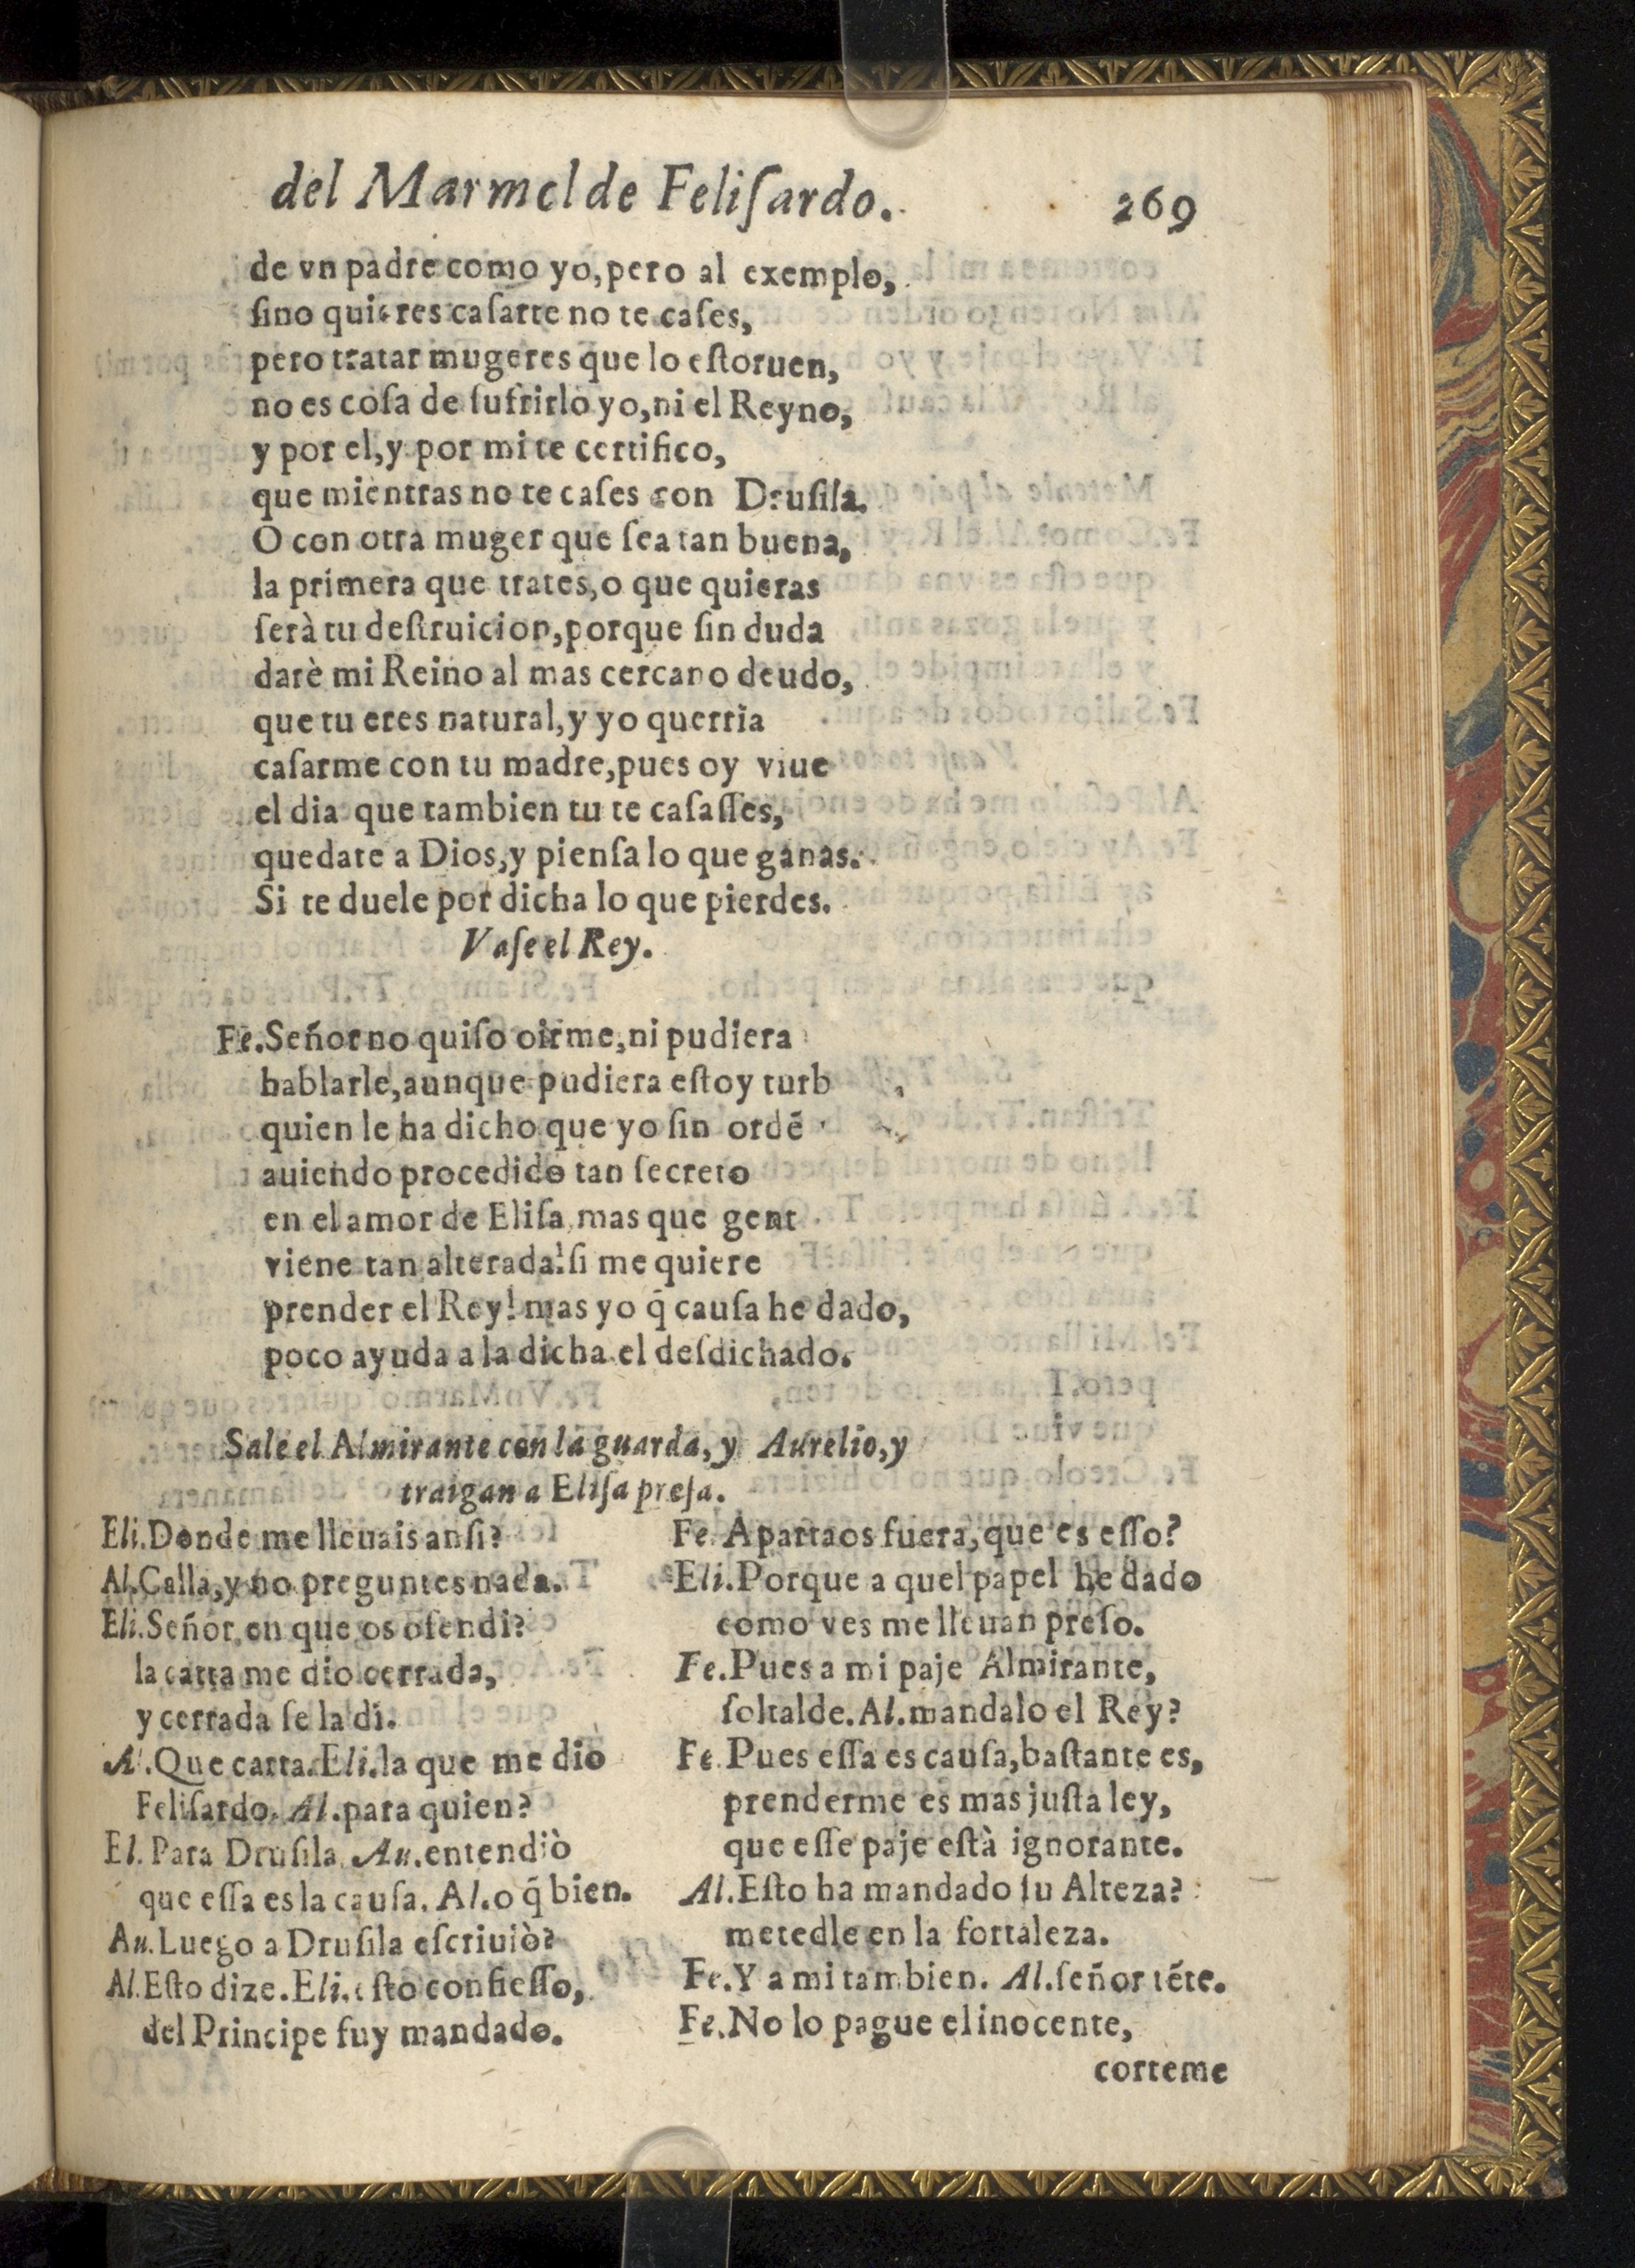 del Marmol de Feliſardo.
269
de vn padre como yo, pero al exemplo,
ſino quieres caſarte no te caſes,
pero tratar mugeres que lo eſtoruen,
no es coſa de ſufrirlo yo, ni el Reyno,
y por el, y por mi te certifico,
que mientras no te caſes con Druſila.
O con otra muger que ſea tan buena,
la primera que trates, o que quieras
ſerà tu deſtruicion, porque ſin duda
darè mi Reino al mas cercano deudo,
que tu eres natural, y yo querria
caſarme con tu madre, pues oy viue
el dia que tambien tu te caſaſſes,
quedate a Dios, y pienſa lo que ganas.
Si te duele por dicha lo que pierdes.
Vaſe el Rey.
Fe. Señor no quiſo oirme, ni pudiera
hablarle, aunque pudiera eſtoy turb
quien le ha dicho que yo ſin ordē
auiendo procedido tan ſecreto
en el amor de Eliſa, mas que gent
viene tan alterada! ſi me quiere
prender el Rey! mas yo q̃ cauſa he dado,
poco ayuda a la dicha el deſdichado.
Sale el Almirante con la guarda, y Aurelio, y
traigan a Eliſa preſa.
Eli. Donde me lleuais anſi?
Al. Calla, y no preguntes nada.
Eli. Señor, en que os ofendi?
la carta me dio cerrada,
y cerrada ſe la di.
Al. Que carta. Eli. la que me diò
Feliſardo. Al. para quien?
El. Para Druſila. Au. entendiò
que eſſa es la cauſa. Al. o q̃ bien.
Au. Luego a Druſila eſcriuiò?
Al. Eſto dize. Eli. eſto confieſſo,
del Principe fuy mandado.
Fe. Apartaos fuera, que es eſſo?
Eli. Porque a quel papel he dado
como ves me lleuan preſo.
Fe. Pues a mi paje Almirante,
ſoltalde. Al. mandalo el Rey?
Fe. Pues eſſa es cauſa, baſtante es,
prenderme es mas juſta ley,
que eſſe paje eſtà ignorante.
Al. Eſto ha mandado ſu Alteza?
metedle en la fortaleza.
Fe. Y a mi tambien. Al. ſeñor tẽte.
Fe. No lo pague el inocente,
corteme